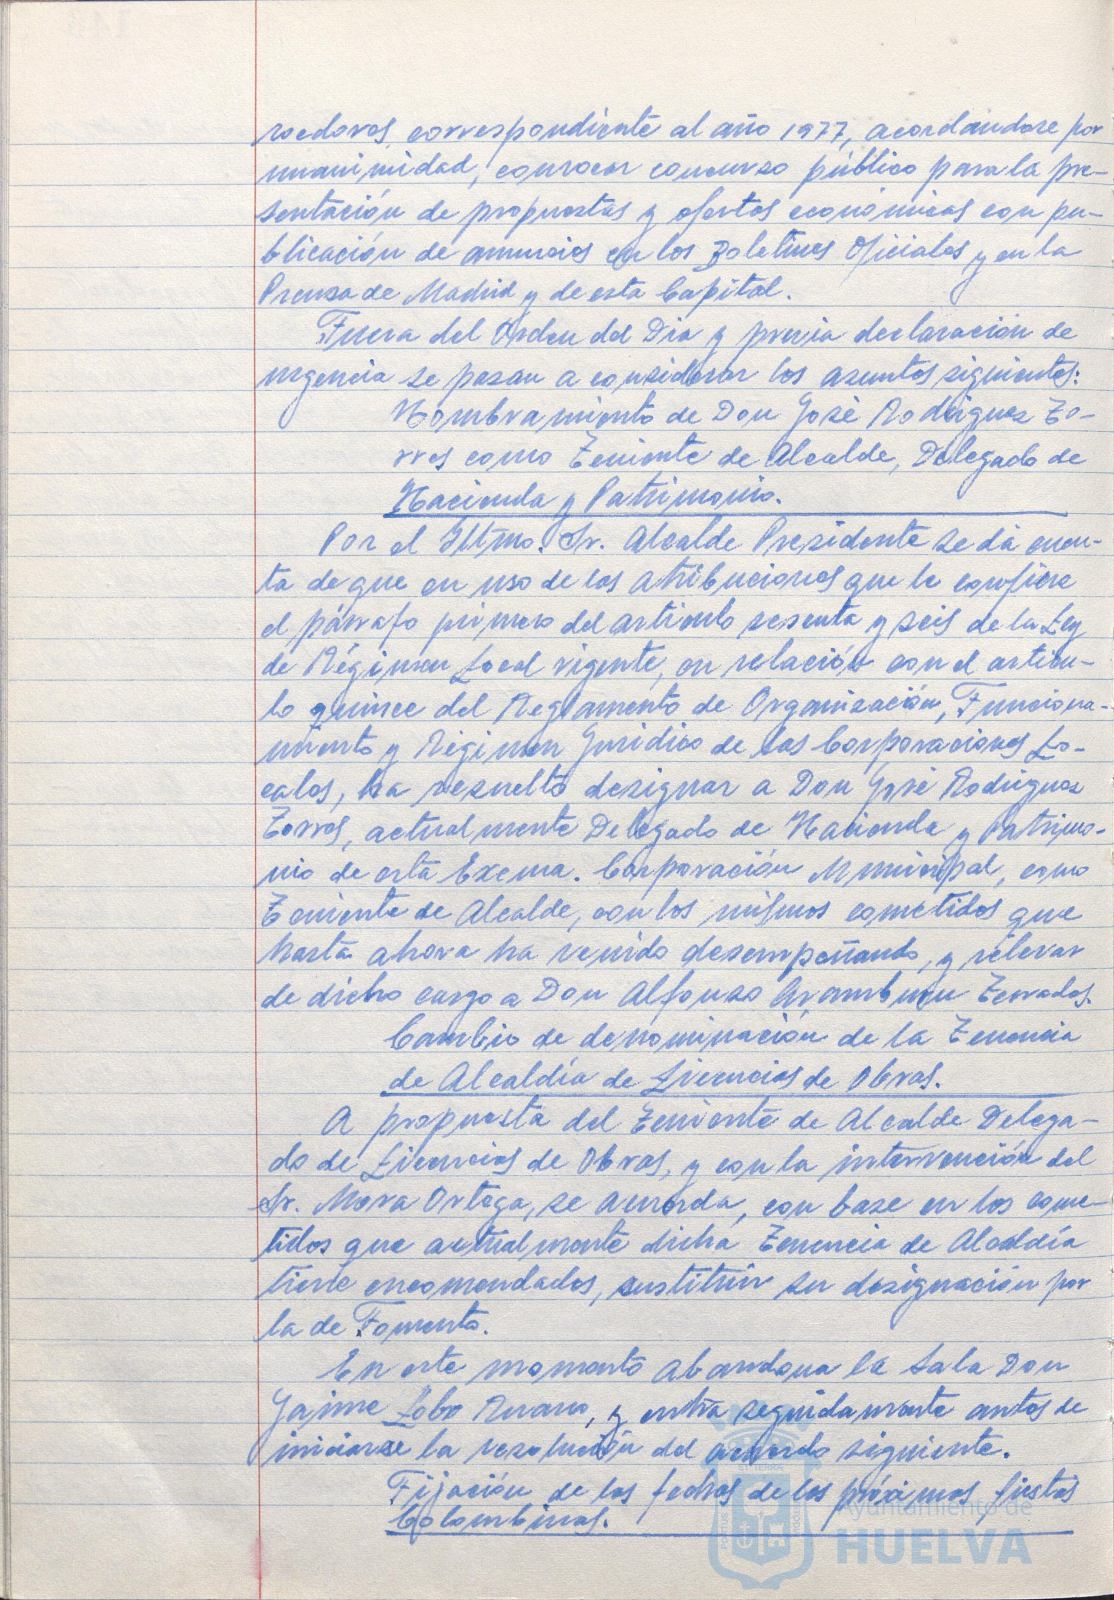 roedores, correspondiente al año 1977, acordándose por
unanimidad, convocar concurso público para la pre-
sentación de propuestas y ofertas económicas con pu-
blicación de anuncios en los Boletines Oficiales y en la
Prensa de Madrid y de esta Capital.
Fuera del Orden del Dia y previa declaración de
urgencia se pasan a considerar los asuntos siguientes:
Nombramiento de Don José Rodríguez To-
rres como Teniente de Alcalde, Delegado de
Hacienda y Patrimonio.
Por el Iltmo. Sr. Alcalde Presidente se dá cuen-
ta de que en uso de las atribuciones que le confiere
el párrafo primero del artículo sesenta y seis de la Ley
de Régimen Local vigente, en relación con el artícu-
lo quince del Reglamento de Organización, Funciona-
miento y Régimen Jurídico de las Corporaciones Lo-
cales, ha resuelto designar a Don José Rodríguez
Torres, actualmente Delegado de Hacienda y Patrimo-
nio de esta Excma. Corporación Municipal, como
Teniente de Alcalde, con los mismos cometidos que
hasta ahora ha venido desempeñando, y relevar
de dicho cargo a Don Alfonso Aramburu Terrades.
Cambio de denominación de la Tenencia
de Alcaldía de Licencias de Obras.
A propuesta del Teniente de Alcalde Delega-
do de Licencias de Obras, y con la intervención del
Sr. Mora Ortega, se acuerda, con base en los come-
tidos que actualmente dicha Tenencia de Alcaldía
tiene encomendados, sustituir su designación por
la de Fomento.
En este momento abandona la Sala Don
Jaime Lobo, y entra seguidamente antes de
iniciarse la resolución del acuerdo siguiente.
Fijación de las fechas de las próximas fiestas
Colombinas.
Ayuntamiento de
HUELVA